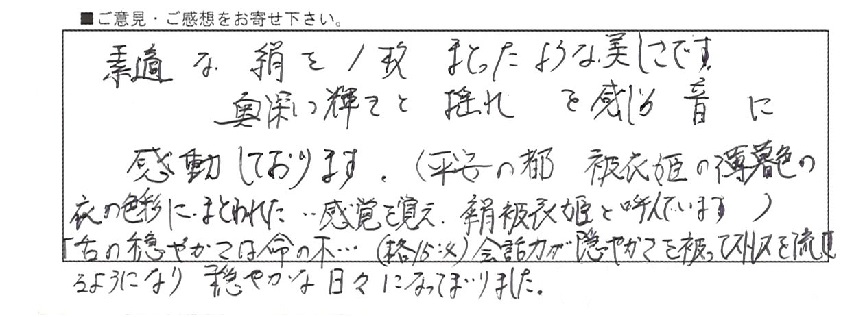 ■ご意見・ご感想をお寄せ下さい。
素適な絹を1枚まとったような美しさです
奥深い輝きと揺れを感じる音に
感動しております。(平安の都 被衣姫の薄暮色の
衣の色彩にまとわれた‥感覚を覚え、絹被衣姫と呼んでいます)
「舌の穏やかさは命の木…(格15:4)会話力が穏やかさを被ってストレスを流せ
るようになり 穏やかな日々になってまいりました。